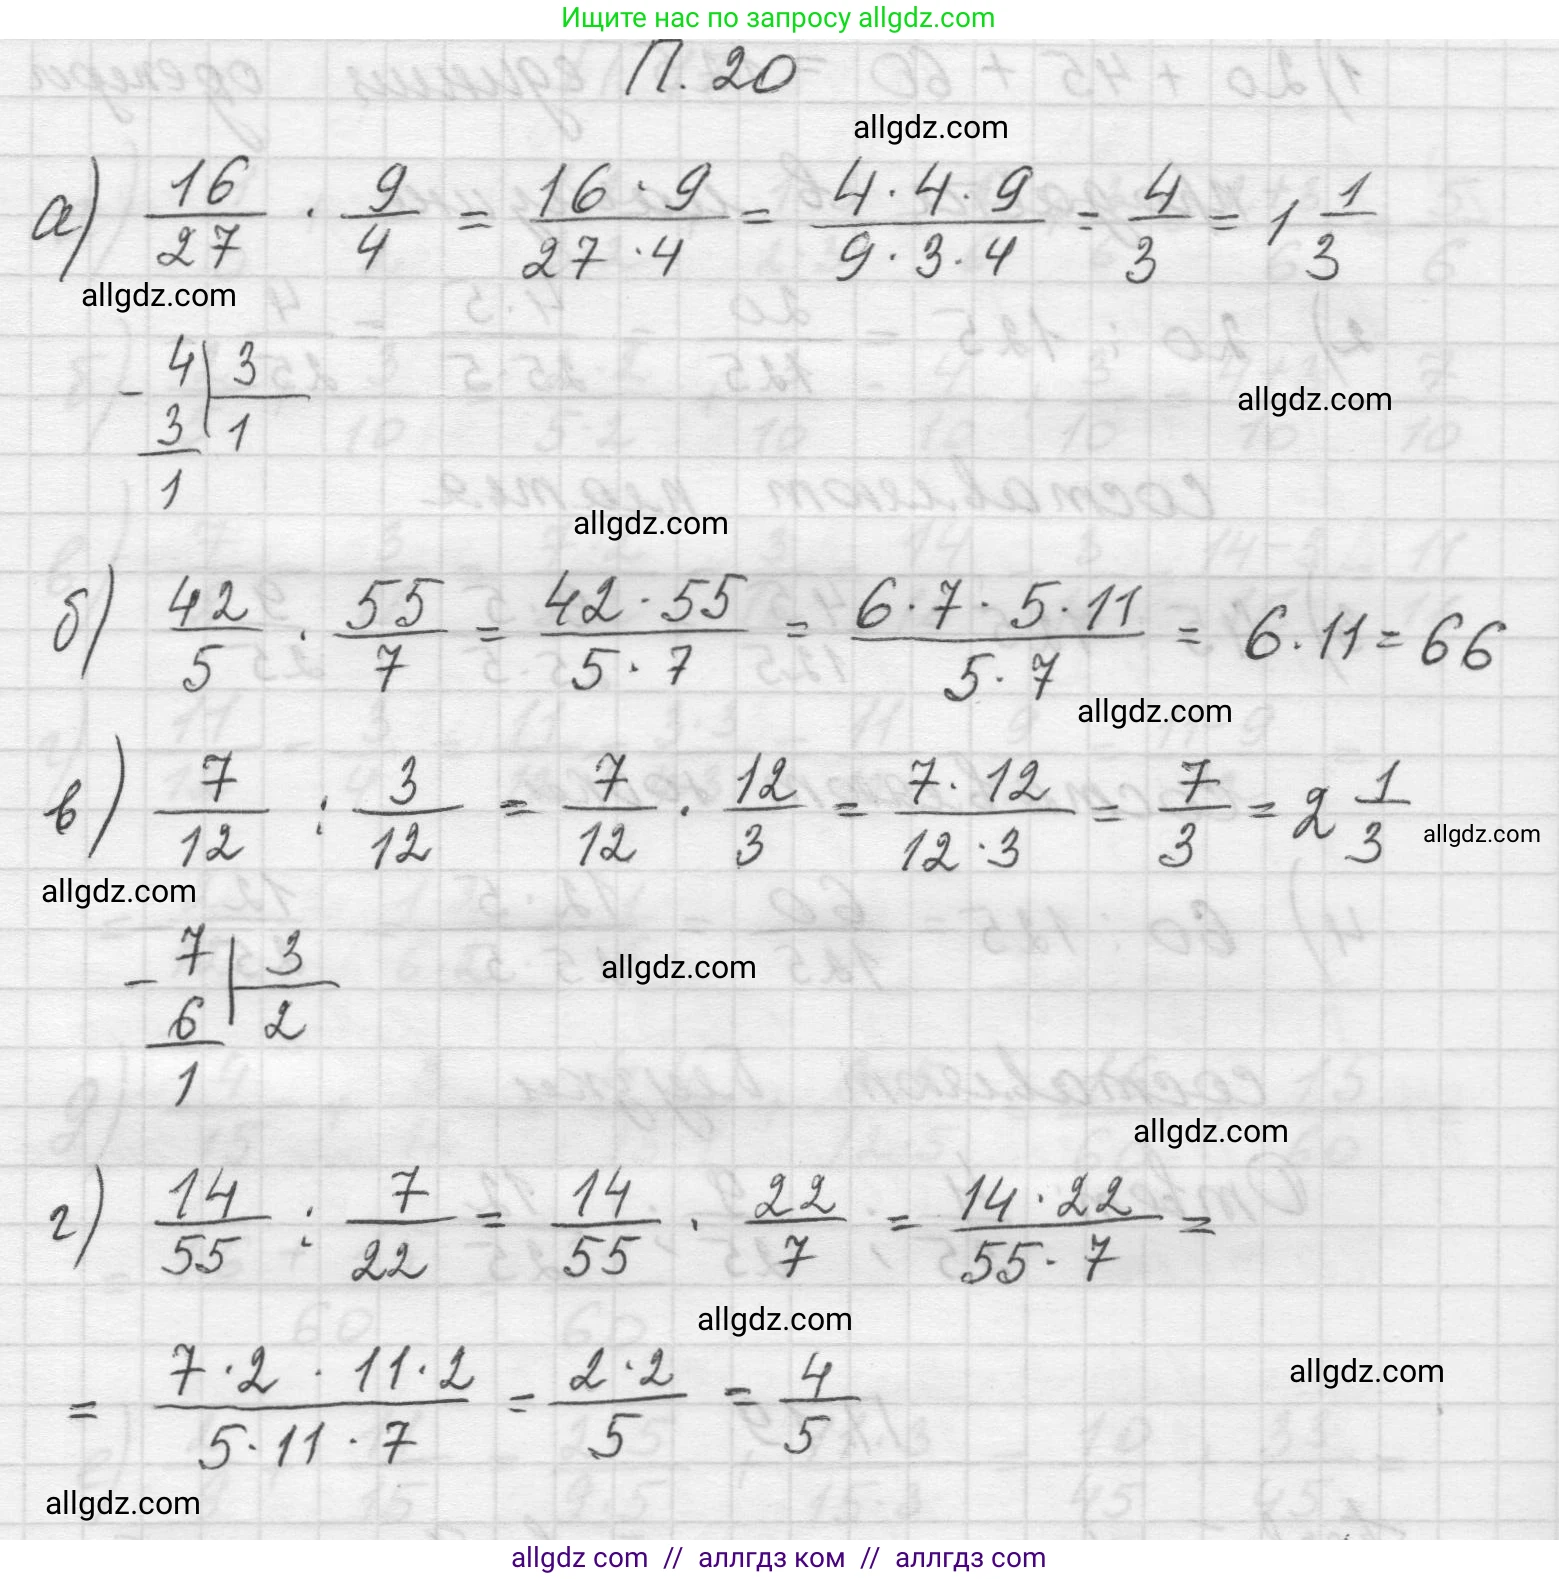 Ищите нас по запросу allgdz.com
П. 20
allgdz.com
а) 16/27 · 9/4 = 16·9/27·4 = 4·4·9/9·3·4 = 4/3 = 1 1/3
allgdz.com
- 4 | 3
3 | 1
1
allgdz.com
allgdz.com
б) 42/5 · 55/7 = 42·55/5·7 = 6·7·5·11/5·7 = 6·11 = 66
allgdz.com
в) 7/12 : 3/12 = 7/12 · 12/3 = 7·12/12·3 = 7/3 = 2 1/3
allgdz.com
allgdz.com
- 7 | 3
6 | 2
1
allgdz.com
allgdz.com
г) 14/55 : 7/22 = 14/55 · 22/7 = 14·22/55·7 =
allgdz.com
= 7·2·11·2/5·11·7 = 2·2/5 = 4/5
allgdz.com
allgdz.com
allgdz com // аллгдз ком // аллгдз com